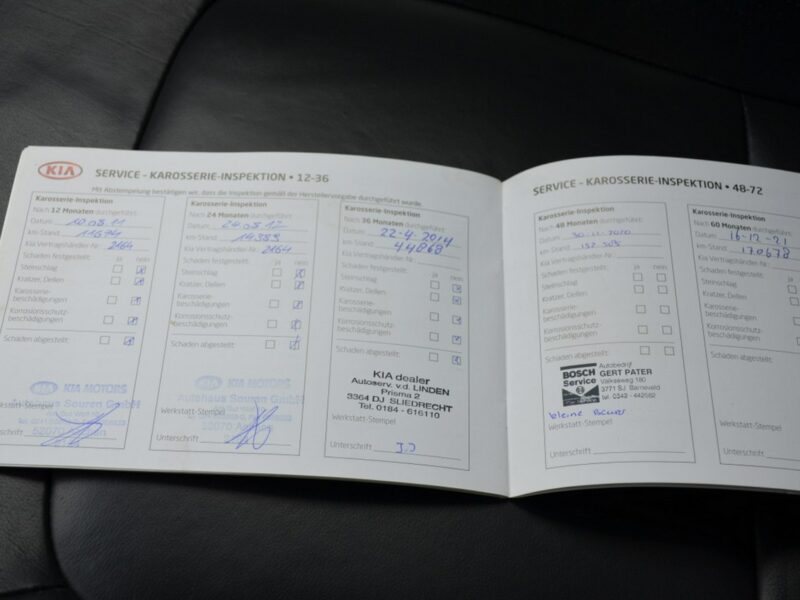 KIA
SERVICE - KAROSSERIE-INSPEKTION • 12-36
Mit Abstempelung bestätigen wir, dass die Inspektion gemäß der Herstellervorgabe durchgeführt wurde.
Karosserie-Inspektion
Nach 12 Monaten durchgeführt:
Datum 10.05.11
km-Stand 11694
Kia Vertragshändler Nr. 2164
Schaden festgestellt: ja nein
Steinschlag
Kratzer, Dellen
Karosserie-
beschädigungen
Korrosionsschutz-
beschädigungen
Schaden abgestellt:
KIA MOTORS
Autohaus Souren GmbH
Werkstatt-Stempel
Unterschrift
Karosserie-Inspektion
Nach 24 Monaten durchgeführt:
Datum
km-Stand
Kia Vertragshändler Nr. 2164
Schaden festgestellt: ja nein
Steinschlag
Kratzer, Dellen
Karosserie-
beschädigungen
Korrosionsschutz-
beschädigungen
Schaden abgestellt:
KIA MOTORS
Autohaus Souren GmbH
Werkstatt-Stempel
52070 Aachen
Unterschrift
Karosserie-Inspektion
Nach 36 Monaten durchgeführt:
Datum 22-4-2014
km-Stand 44868
Kia Vertragshändler Nr.
Schaden festgestellt: ja nein
Steinschlag
Kratzer, Dellen
Karosserie-
beschädigungen
Korrosionsschutz-
beschädigungen
Schaden abgestellt:
KIA dealer
Autoserv. v.d. LINDEN
Prisma 2
3364 DJ SLIEDRECHT
Tel. 0184 - 616110
Werkstatt-Stempel
Unterschrift
SERVICE - KAROSSERIE-INSPEKTION • 48-72
Karosserie-Inspektion
Nach 48 Monaten durchgeführt:
Datum 30-11-2020
km-Stand
Kia Vertragshändler Nr.
Schaden festgestellt: ja nein
Steinschlag
Kratzer, Dellen
Karosserie-
beschädigungen
Korrosionsschutz-
beschädigungen
Schaden abgestellt:
BOSCH
Service
Autobedrijf
GERT PATER
Valkseweg 180
3771 SJ Barneveld
tel. 0342 - 442582
kleine Beurt
Werkstatt-Stempel
Unterschrift
Karosserie-Inspektion
Nach 60 Monaten
Datum 16-12-21
km-Stand 170678
Kia Vertragshändler
Schaden festgestellt:
Steinschlag
Kratzer, Dellen
Karosserie-
beschädigungen
Korrosionsschutz-
beschädigungen
Schaden abgestellt:
Werkstatt-Stempel
Unterschrift